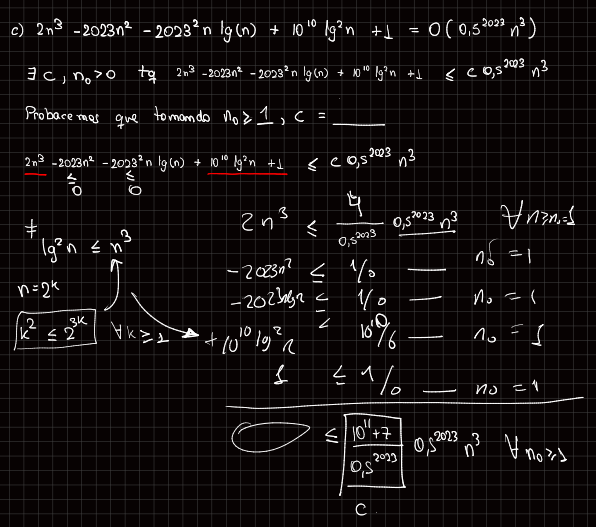 c) 2n³ - 2023n² - 2023²n lg(n) + 10¹⁰ lg²n + 1 = O(0,5²⁰²³ n³)
∃ c, n₀ > 0 tq 2n³ - 2023n² - 2023²n lg(n) + 10¹⁰ lg²n + 1 ≤ c 0,5²⁰²³ n³
Probaremos que tomando n₀ ≥ 1, c = ____
2n³ - 2023n² - 2023²n lg(n) + 10¹⁰ lg²n + 1 ≤ c 0,5²⁰²³ n³
≤ 0 ≤ 0
2n³ ≤ 4/0,5²⁰²³ 0,5²⁰²³ n³ ∀n≥n₀=1
≠ lg²n ≤ n³
-2023n² ≤ 1/0 ___ n₀ = 1
n=2ᵏ
≤ 1/0 ___ n₀ = 1
k² ≤ 2³ᵏ ∀k ≥ 1
+10¹⁰ lg²n ≤ ___ n₀ = 1
1 ≤ 1/0 ___ n₀ = 1
≤ 10¹¹+7/0,5²⁰²³ 0,5²⁰²³ n³ ∀n₀≥1
c